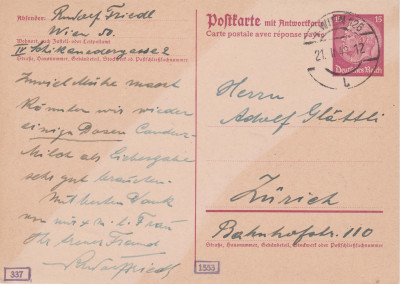 Absender: Rudolf Friedl
Wien 50.
Wohnort, auch Zustell- oder Leitpostamt
IV Schikanedergasse 2
Straße, Hausnummer, Gebäudeteil, Stockwerk od. Postschließfachnummer
Mühe macht
Könnten wir wieder
einige Dosen Condens-
Milch als Liebesgabe
sehr gut brauchen.
Mit bestem Dank
von mir u. m. l. Frau
Ihr treuer Freund
Rudolf Friedl
337
Postkarte mit Antwortkarte
Carte postale avec réponse payée
15
Deutsches Reich
WIEN
21.
12
Herrn
Adolf Glättli
Zürich
Bahnhofstr. 110
Straße, Hausnummer, Gebäudeteil, Stockwerk oder Postschließfachnummer
1553